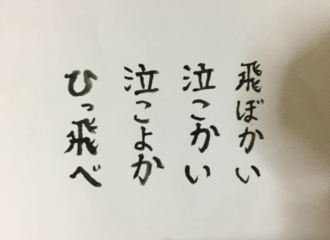 飛ぼかい
泣こかい
泣こよか
ひっ飛べ